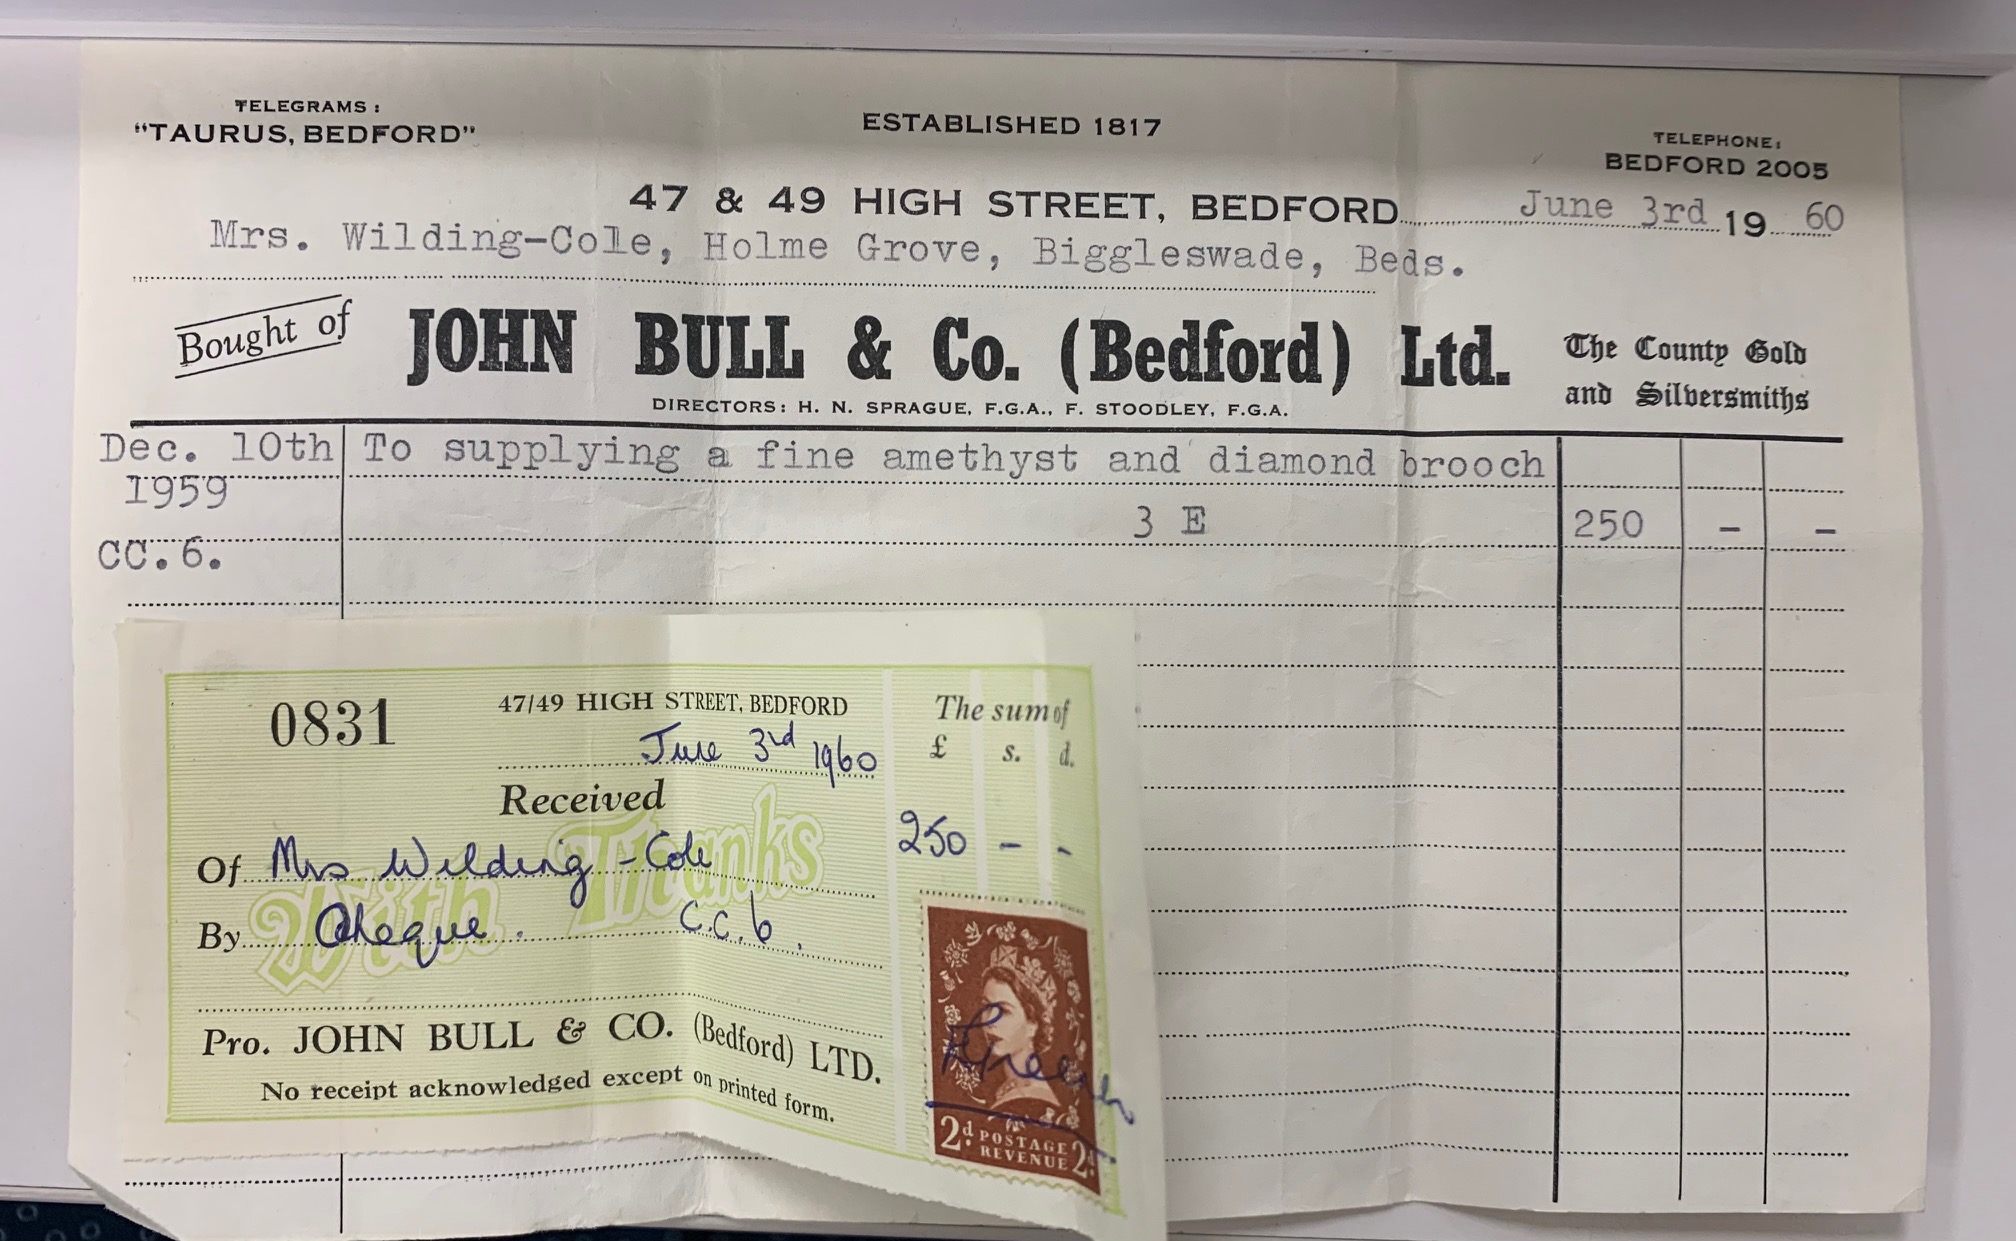 TELEGRAMS :
"TAURUS, BEDFORD"
ESTABLISHED 1817
TELEPHONE:
BEDFORD 2005
47 & 49 HIGH STREET, BEDFORD June 3rd 19 60
Mrs. Wilding-Cole, Holme Grove, Biggleswade, Beds.
Bought of JOHN BULL & Co. (Bedford) Ltd.
The County Gold
and Silversmiths
DIRECTORS: H. N. SPRAGUE, F.G.A., F. STOODLEY, F.G.A.
Dec. 10th To supplying a fine amethyst and diamond brooch
1959
3 E 250 - -
CC.6.
0831
47/49 HIGH STREET, BEDFORD
June 3rd 1960
The sum of
£ s. d.
Received
250 - -
Of Mrs Wilding-Cole
By Cheque. C.C.6.
With Thanks
Pro. JOHN BULL & CO. (Bedford) LTD.
No receipt acknowledged except on printed form.
2d POSTAGE 2d
REVENUE